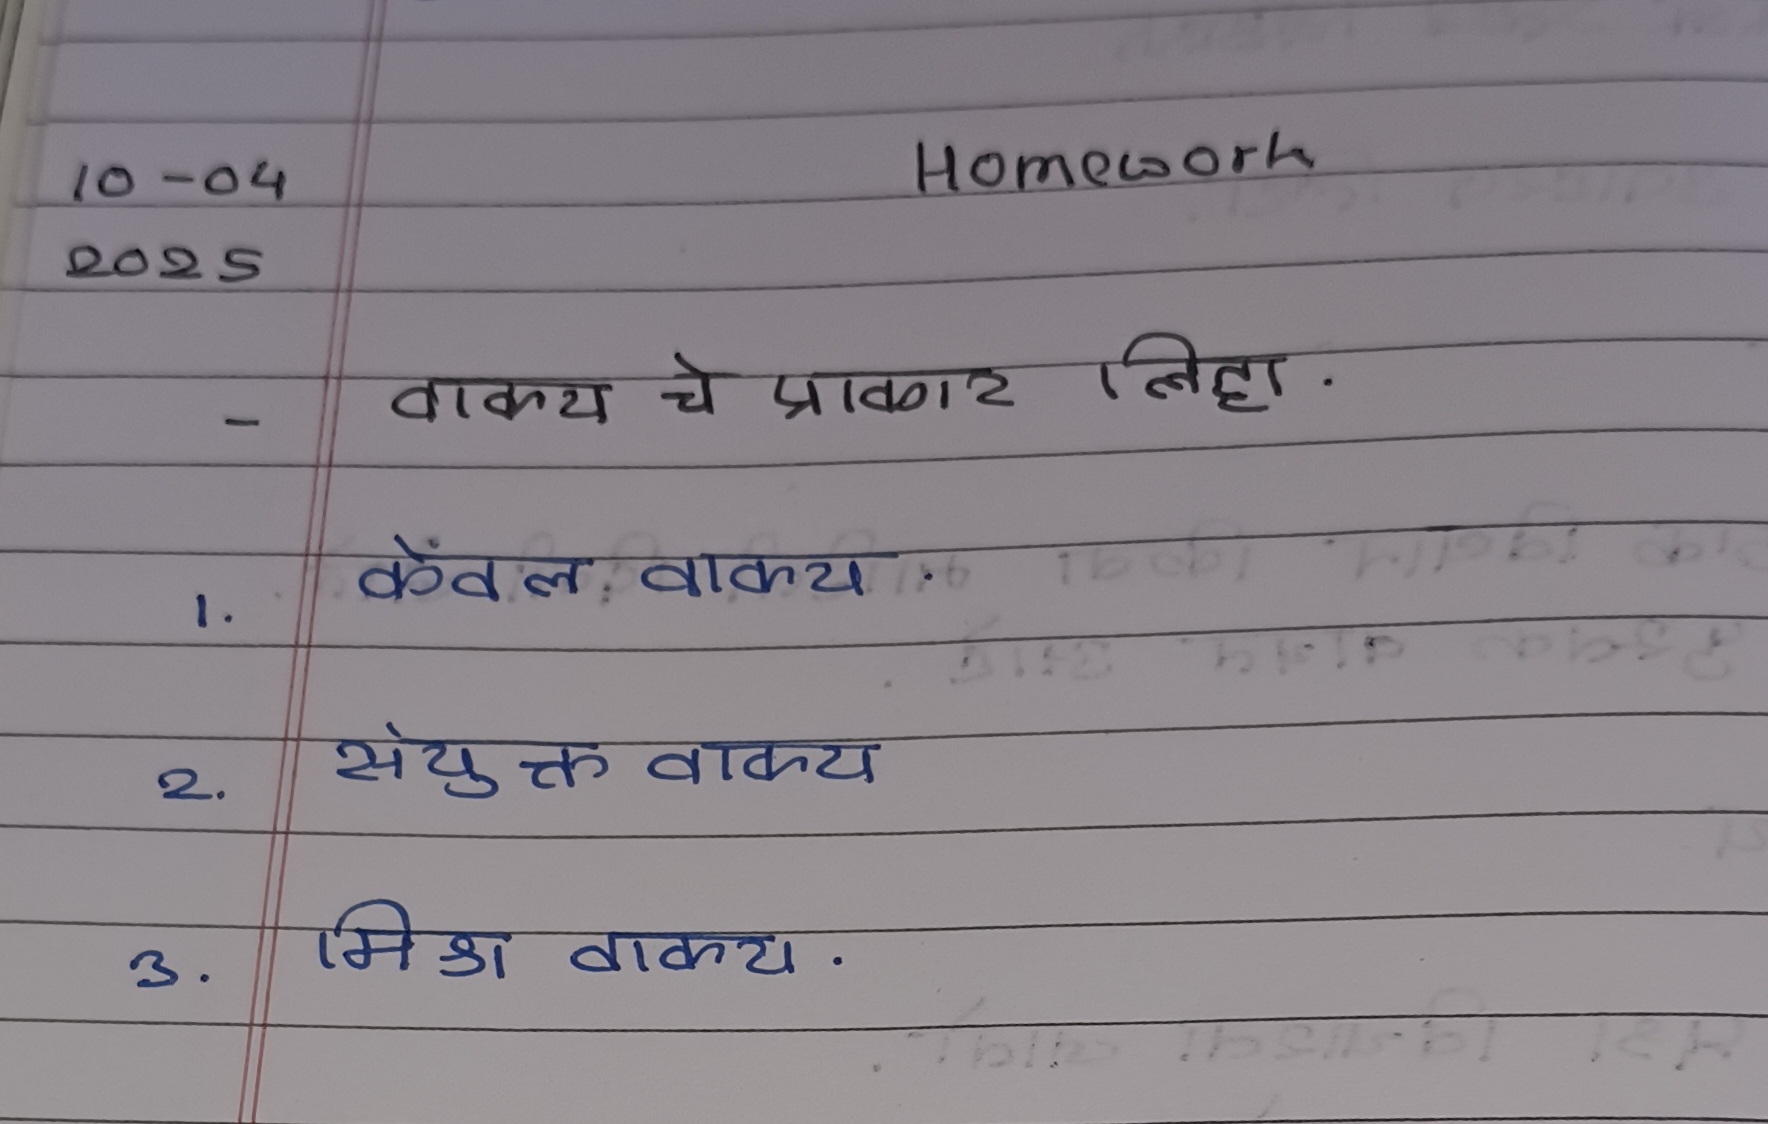 10-04 Homework
2025
- वाक्य चे प्राकार लिहा.
1. केंवल वाक्य.
2. संयुक्त वाक्य
3. मिश्र वाक्य.